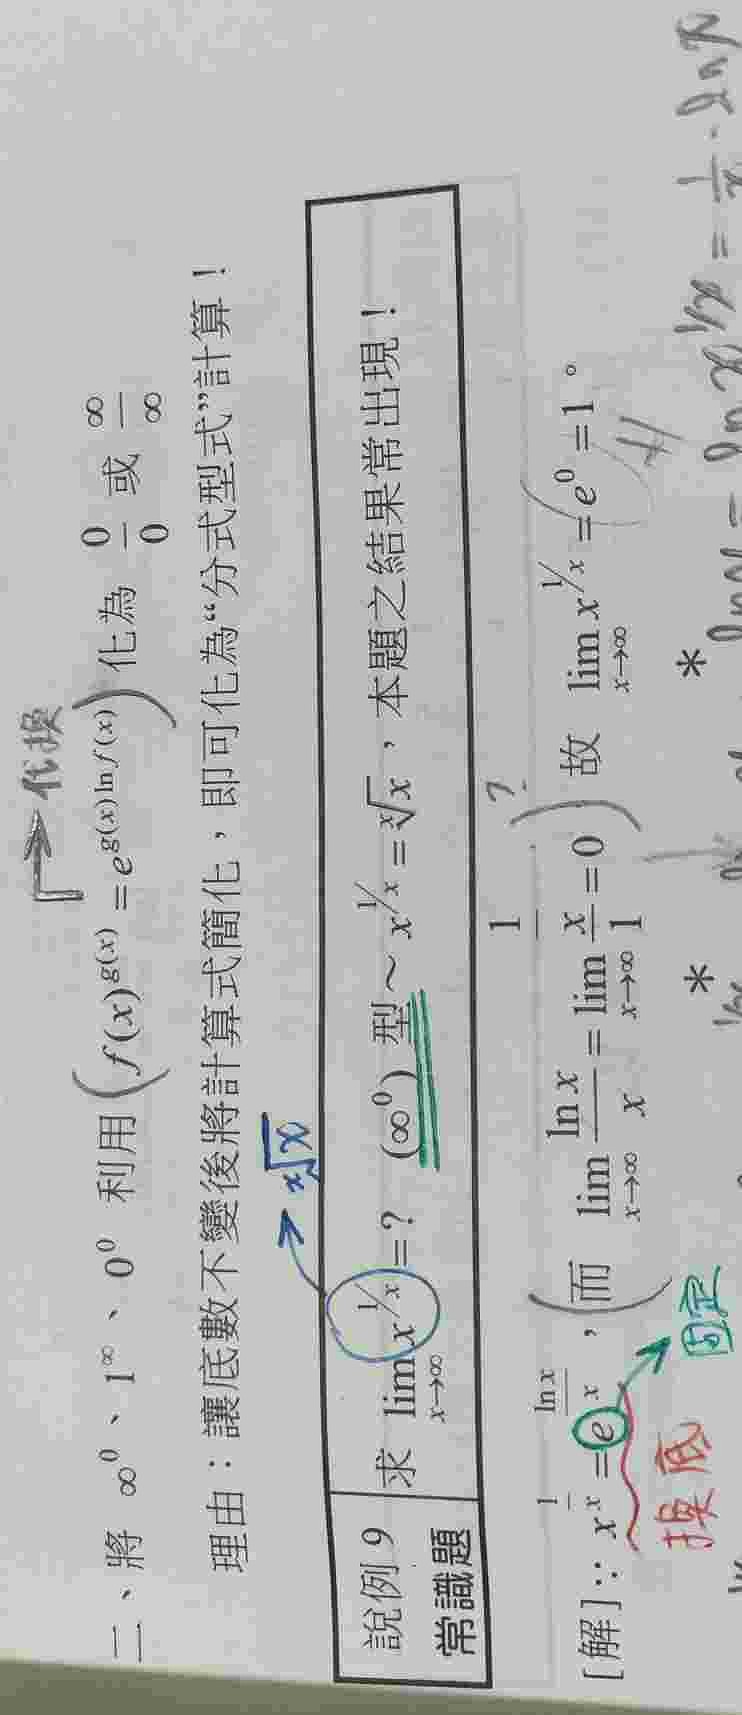 代換
二、將 ∞⁰、1^∞、0⁰ 利用 (f(x)^{g(x)} = e^{g(x) ln f(x)}) 化為 0/0 或 ∞/∞
理由：讓底數不變後將計算式簡化，即可化為“分式型式”計算！
ˣ√x
說例 9 求 lim_{x→∞} x^{1/x} =？ (∞⁰) 型～ x^{1/x} = ˣ√x ，本題之結果常出現！
常識題
[解]：∵ x^{1/x} = e^{ln x / x} ，而 lim_{x→∞} ln x / x = lim_{x→∞} (1/x)/1 = 0 ? 故 lim_{x→∞} x^{1/x} = e⁰ = 1。
換底
固定
* *